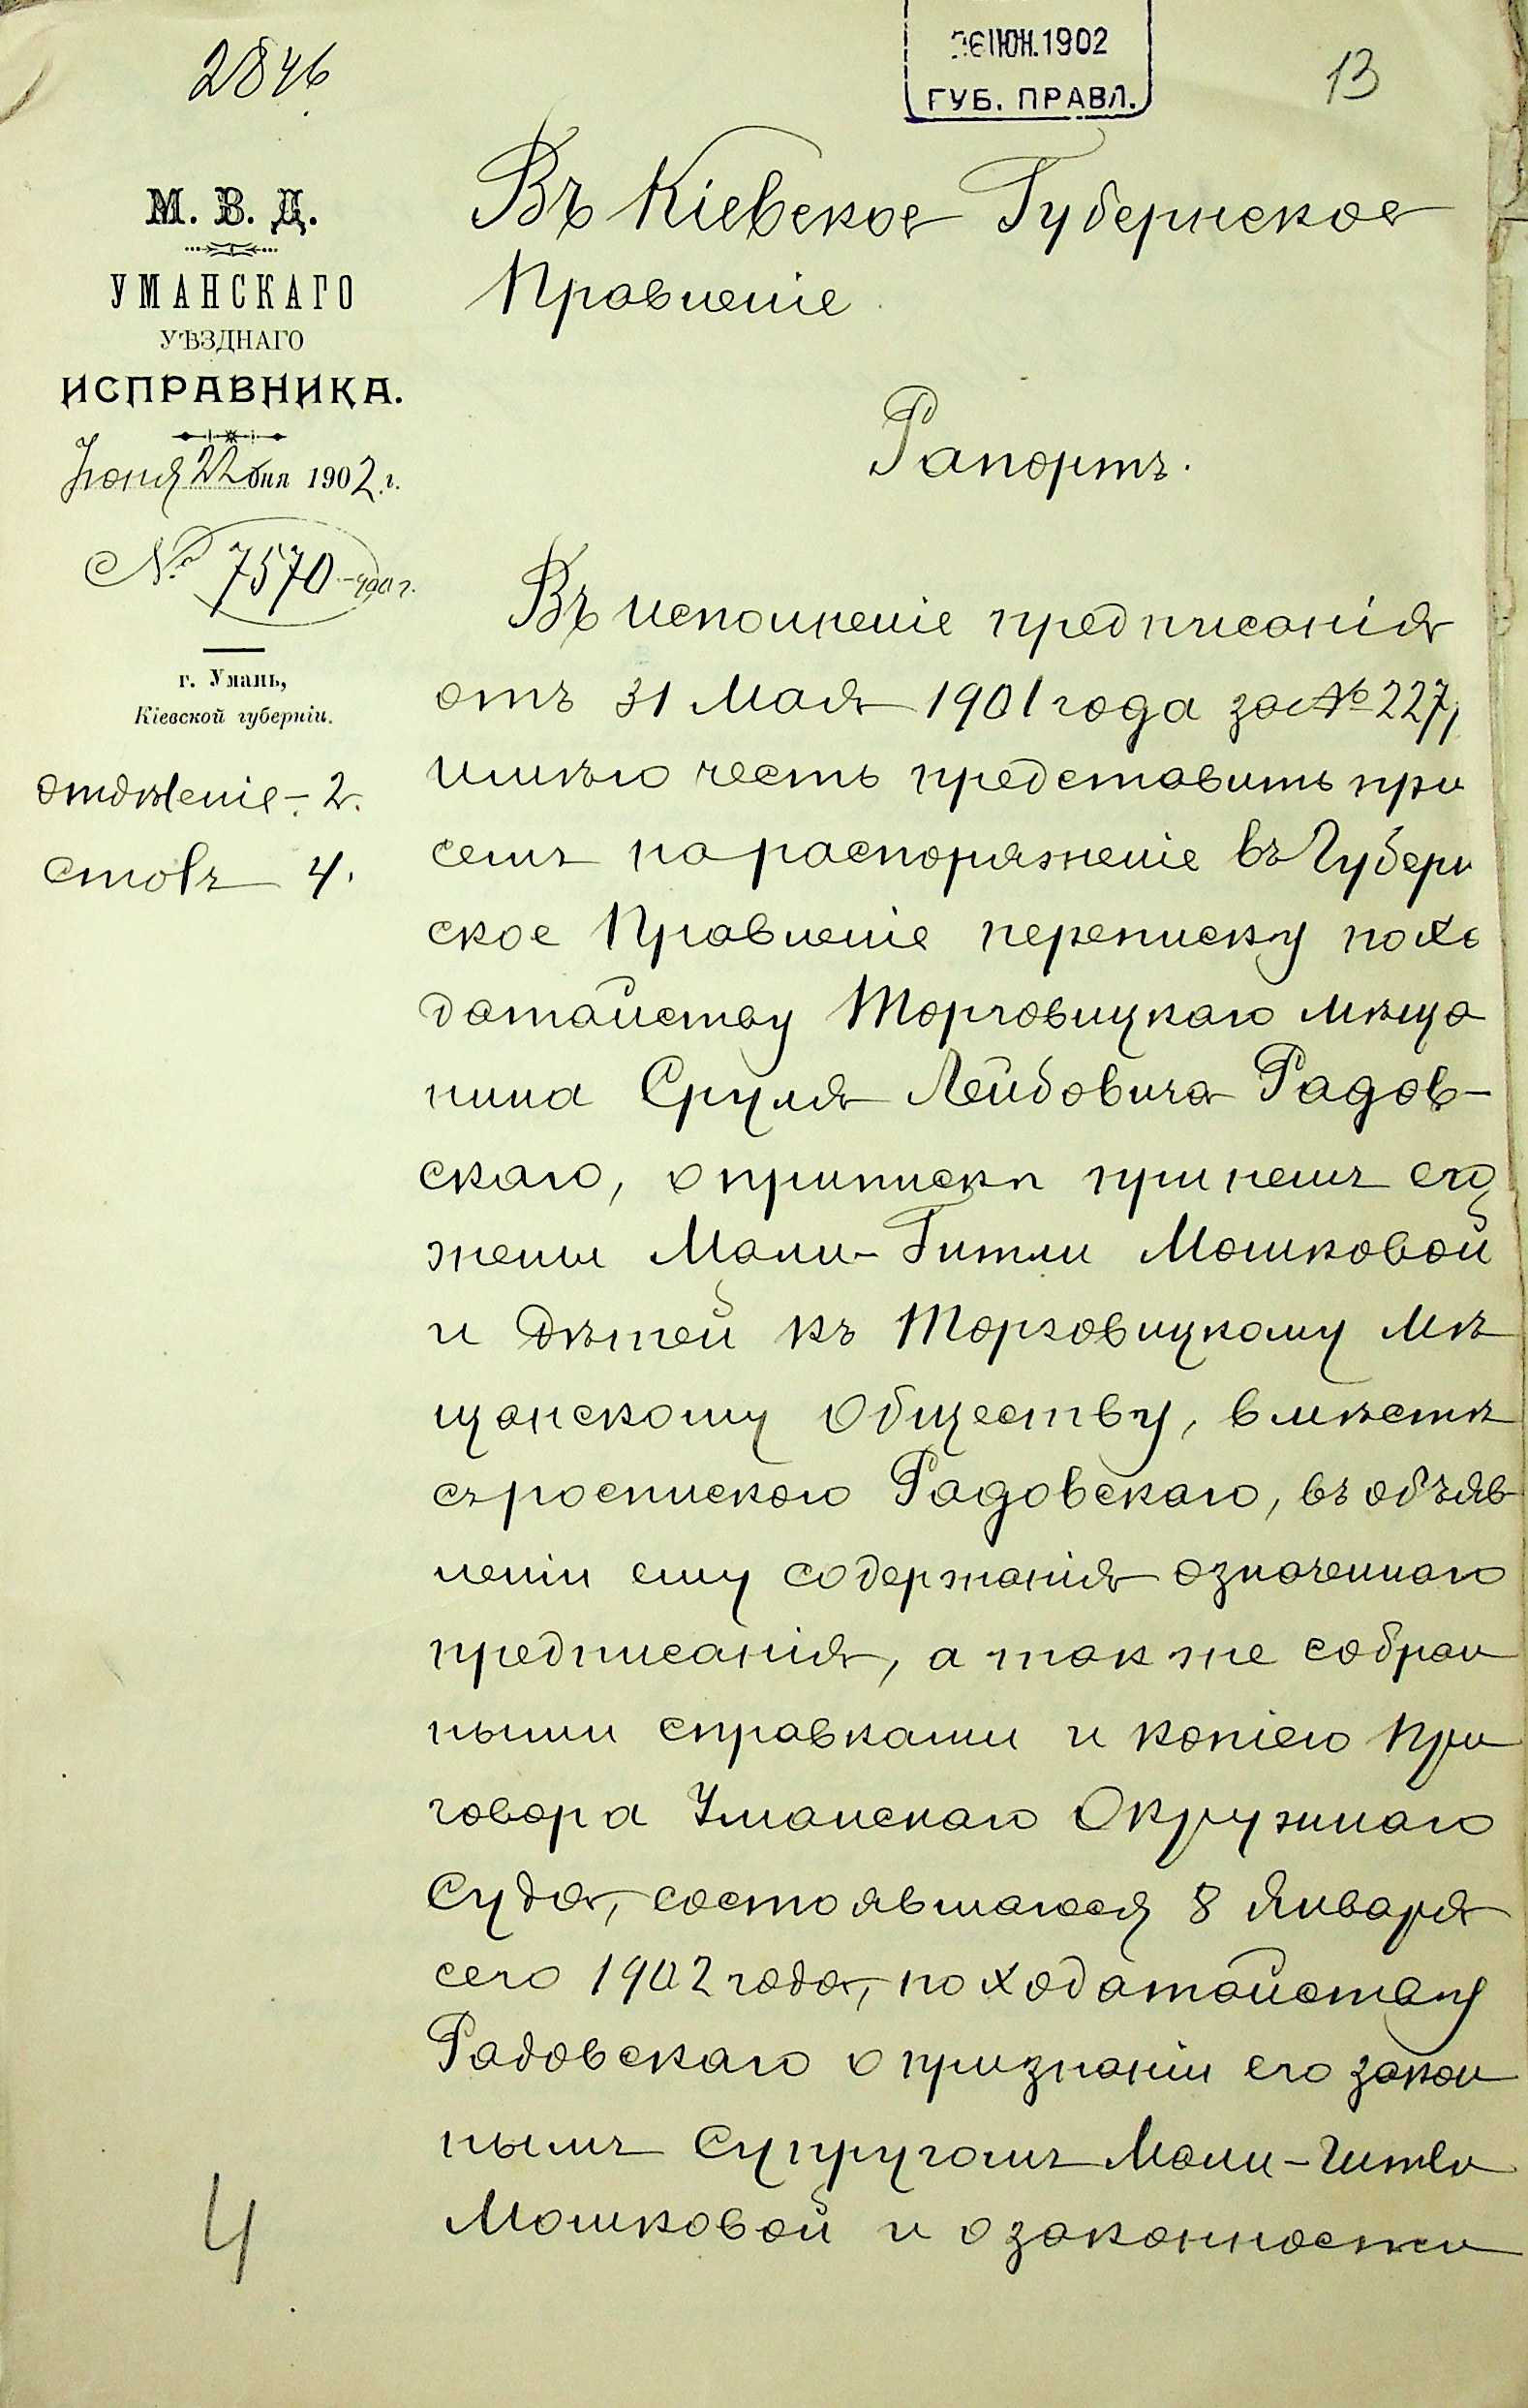 2846
26 ІЮН. 1902
ГУБ. ПРАВЛ.
13
М. В. Д.
УМАНСКАГО
УѢЗДНАГО
ИСПРАВНИКА.
Іюня 22 дня 1902 г.
№ 7570 - 1901 г.
г. Умань,
Кіевской губерніи.
отдѣленіе - 2.
столъ 4.
Въ Кіевское Губернское
Правленіе
Рапортъ.
Въ исполненіе предписанія
отъ 31 Мая 1901 года за № 227,
имѣю честь представить при
семъ на распоряженіе въ Губерн
ское Правленіе переписку по хо
датайству Торговицкаго мѣща
нина Сруля Лейбовича Радов-
скаго, о припискѣ при немъ его
жены Мали-Гитли Мошковой
и дѣтей къ Торговицкому мѣ
щанскому обществу, вмѣстѣ
съ роспискою Радовскаго, въ объяв
леніи ему содержанія означеннаго
предписанія, а также собран
ными справками и копіею при
говора Уманскаго Окружнаго
Суда, состоявшагося 8 Января
сего 1902 года, по ходатайству
Радовскаго о признаніи его закон
нымъ супругомъ Мали-Гитли
Мошковой и о законности
4